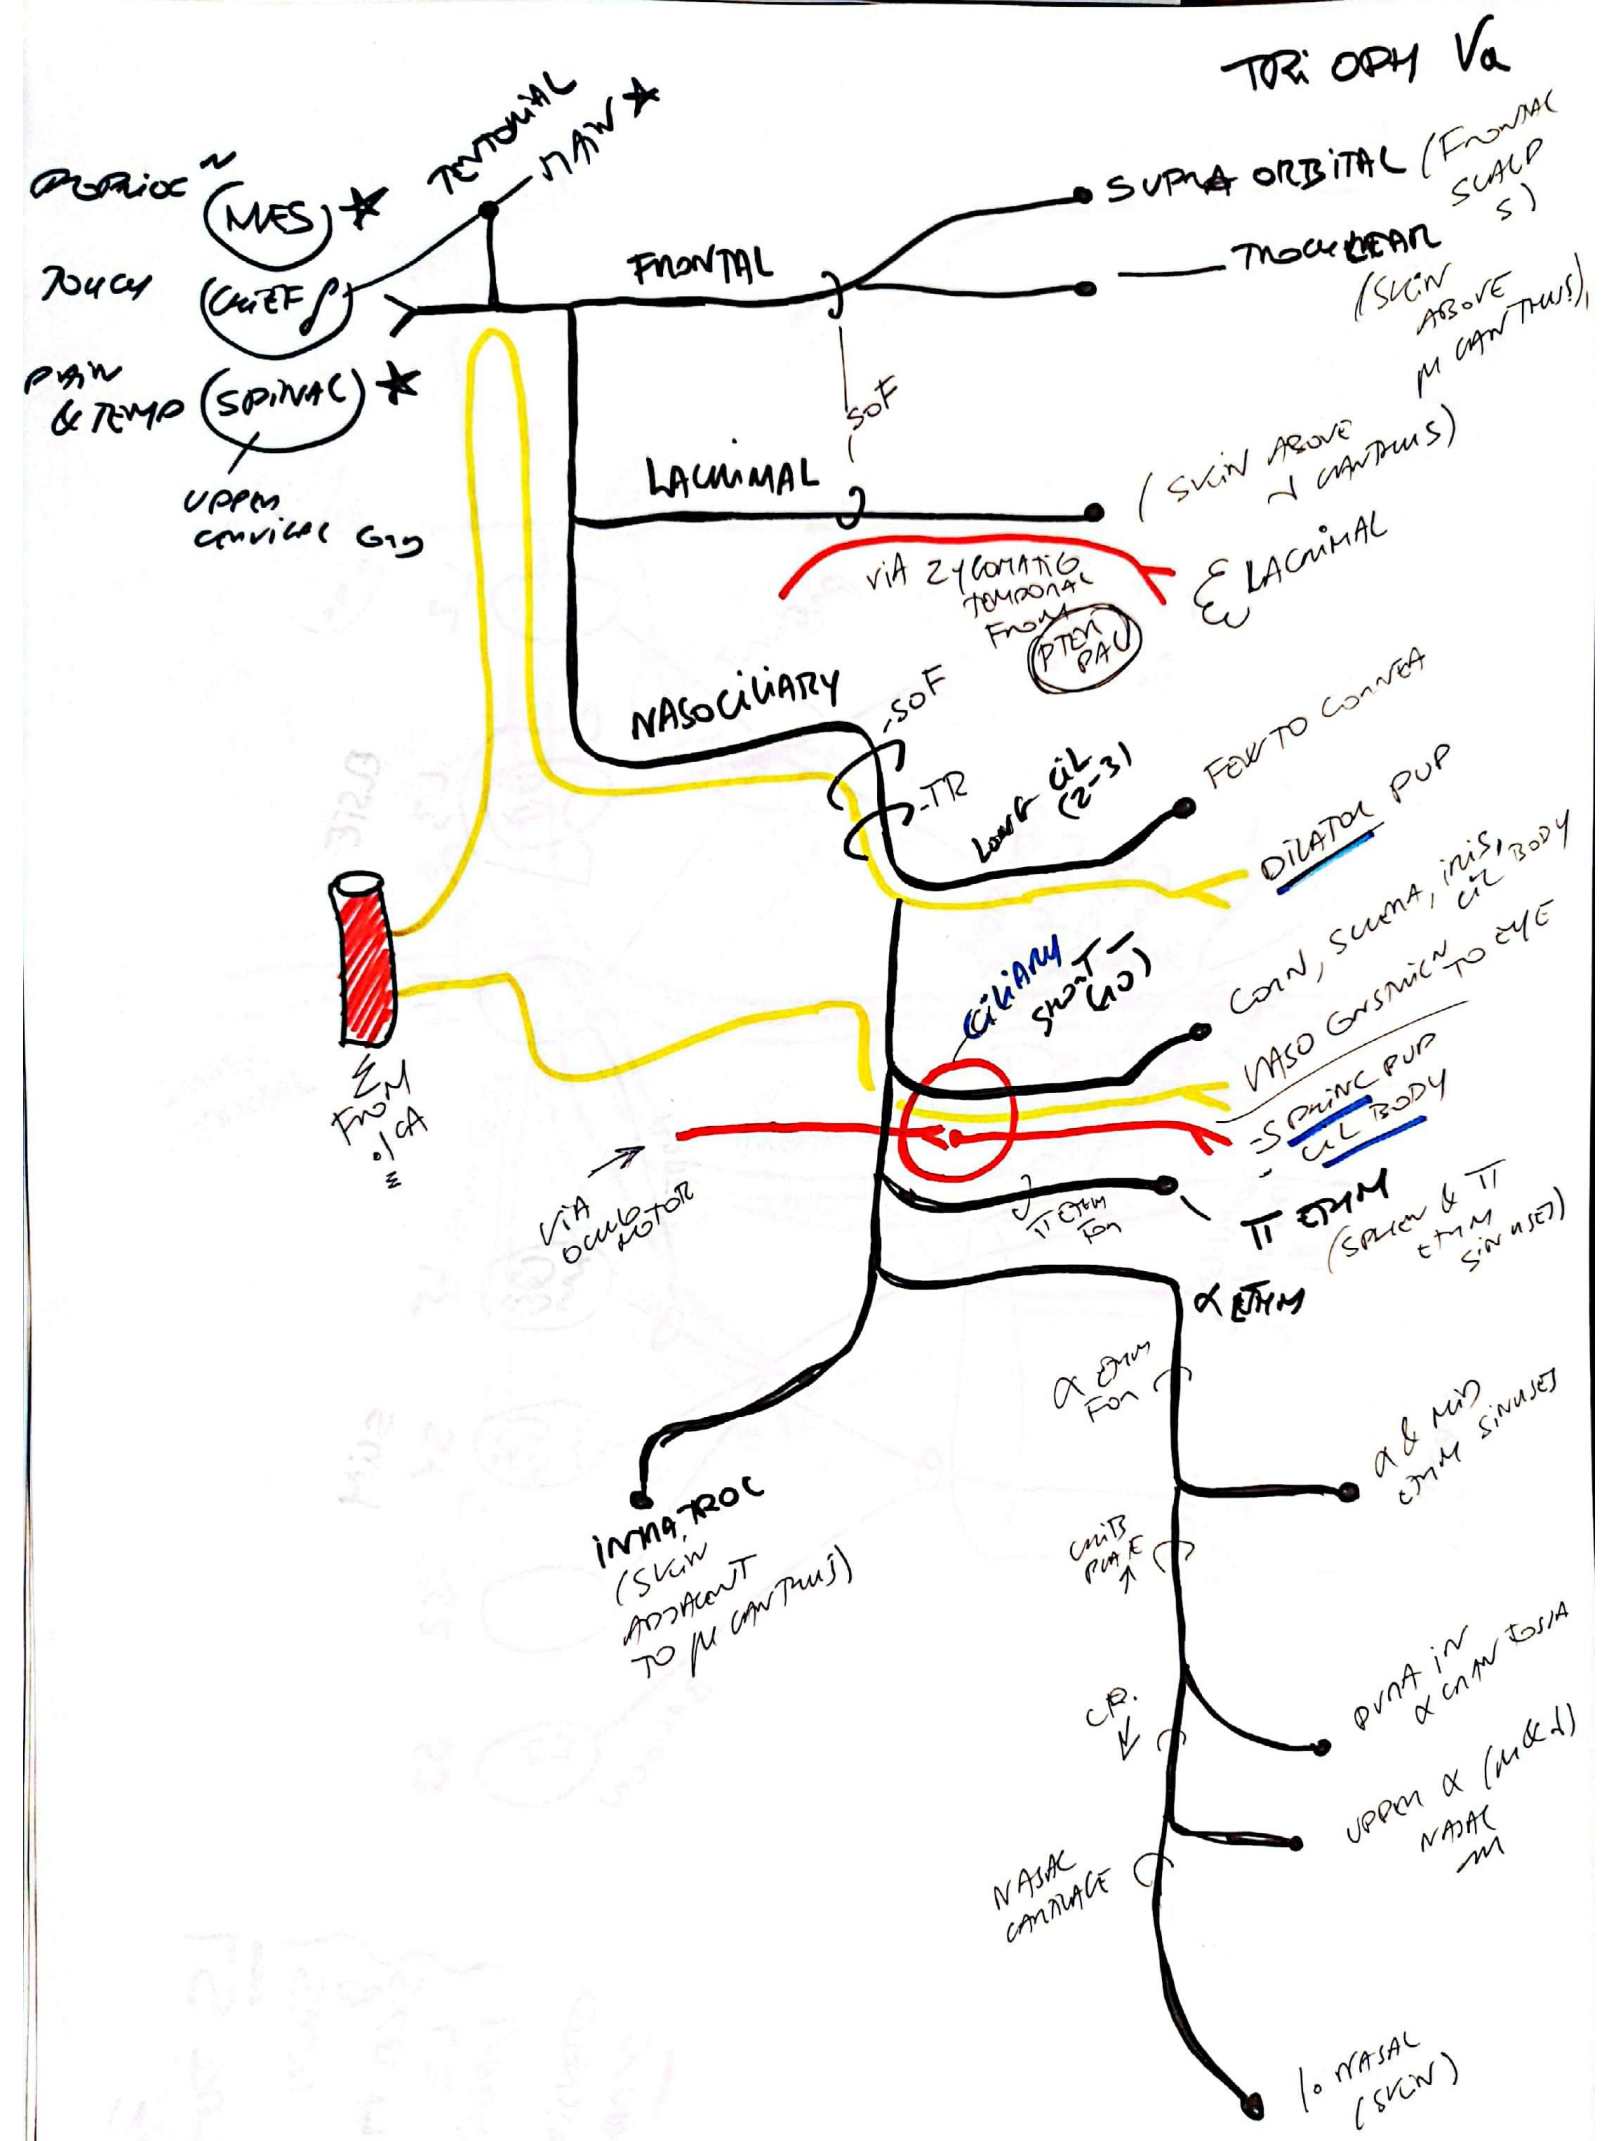 TRI OPH Va
TENTORIAL
MAIN
PROPRIOC
(MES)
TOUCH
(CHIEF
PAIN
& TEMP (SPINAL)
UPPER
CERVICAL
FRONTAL
SOF
SUPRA ORBITAL (FRONTAL
SCALP
S)
TROCHLEAR
(SKIN
ABOVE
M CANTHUS)
LACRIMAL
(SKIN ABOVE
CANTHUS)
VIA ZYGOMATIC
TEMPORAL
FROM
PTER
PAL
LACRIMAL
NASOCILIARY
-SOF
-TR
LONG CIL
(2-3)
FEW TO CORNEA
DILATOR PUP
CILIARY
SHORT
(10)
CORN, SCLERA, IRIS,
CIL BODY
VASO CONSTRICN
TO EYE
-SPHINC PUP
- CIL BODY
Σ
FROM
ICA
VIA
OCULO
MOTOR
Π ETHM
FOR
Π ETHM
(SPHEN & Π
ETHM
SINUSES)
α ETHM
α ETHM
FOR
α & MID
ETHM SINUSES
CRIB
PLATE
↑
DURA IN
α CRAN FOSSA
CR.
↓
UPPER α (M & L)
NASAL
M
NASAL
CARTILAGE
NASAL
(SKIN)
INFRA TROC
(SKIN
ADJACENT
TO M CANTHUS)